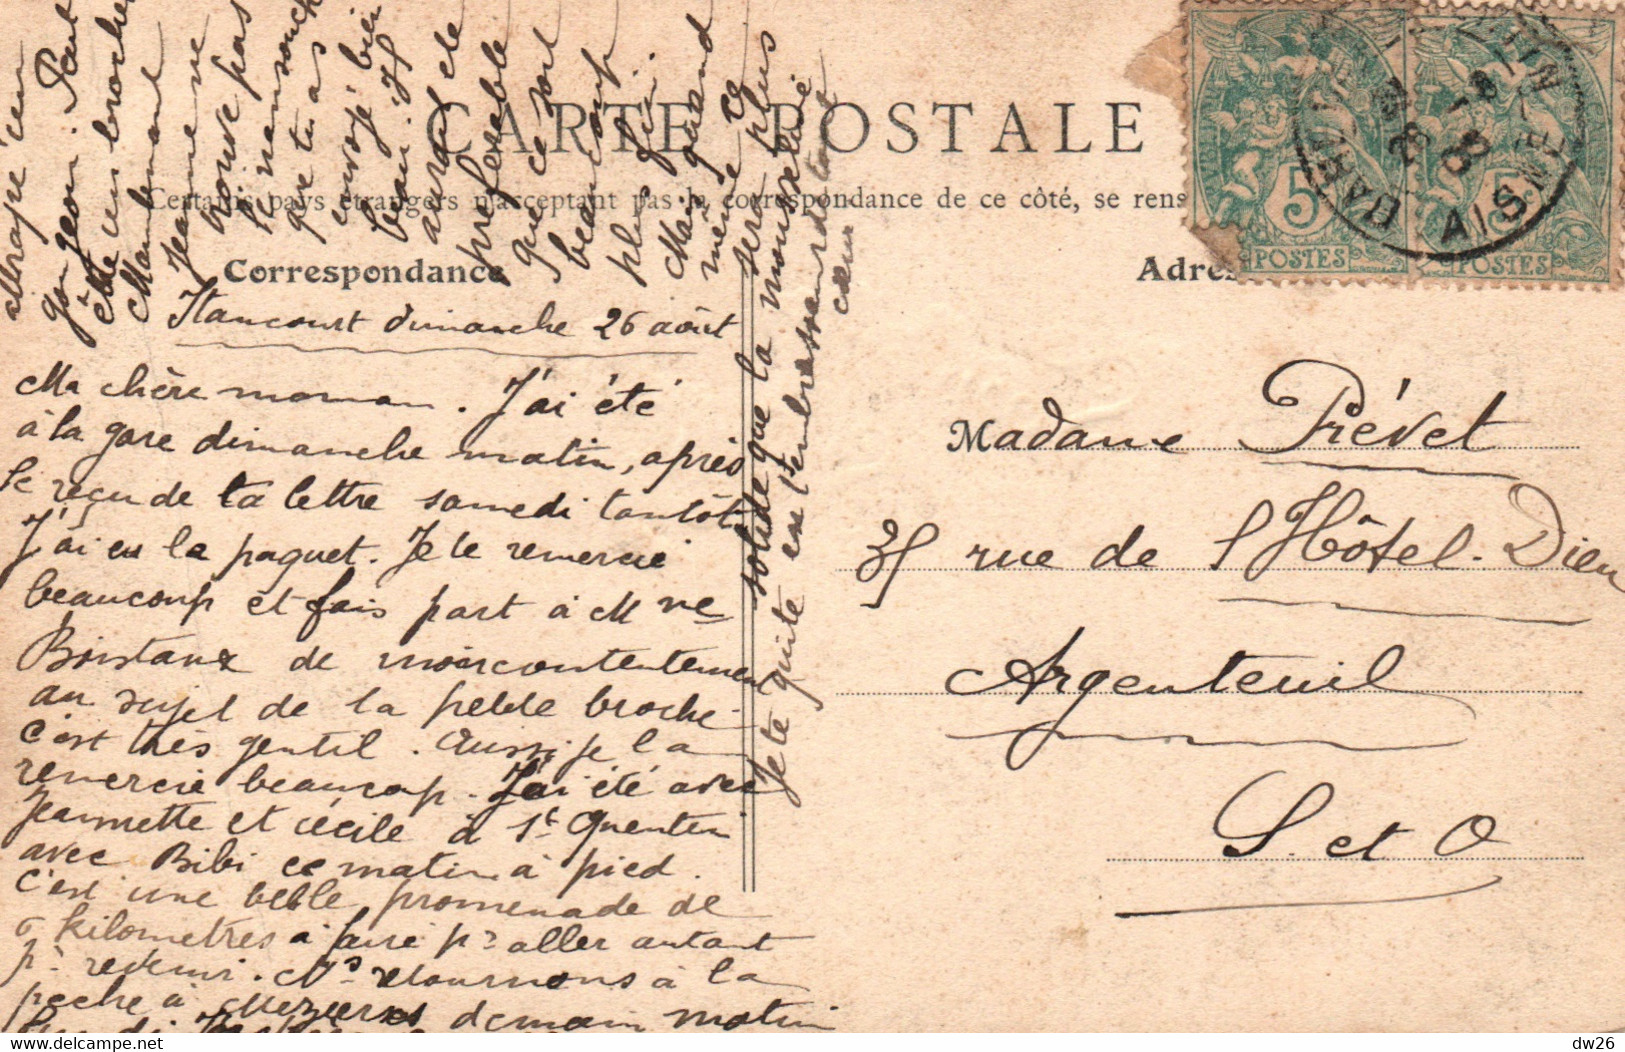 CARTE POSTALE
Certains pays étrangers n'acceptant pas la correspondance de ce côté, se rens
Correspondance
Adres
Itancourt dimanche 26 août
Ma chère maman. J'ai été
à la gare dimanche matin, après
le reçu de ta lettre samedi tantôt.
J'ai eu le paquet. Je te remercie
beaucoup et fais part à Mme
de mon contentement
au sujet de la petite broche
c'est très gentil. Aussi je la
remercie beaucoup. J'ai été avec
Jeannette et cécile à St Quentin
avec Bibi ce matin à pied.
c'est une belle promenade de
6 kilomètres à faire pr aller autant
pr revenir. Ns retournons à la
pêche à Mezieres demain matin
attrape un
gougeon. Peut
être un brochet
Maintenant
Jeanne ne
trouve pas
le nansouck
que tu as
envoyé bien
beau il
aurait été
préférable
que ce soit
beaucoup
plus fin.
Mais quand
même ce
sera plus
solide que la mousseline
Je te quitte en t'embrassant de tout
cœur
Madame Prévet
31 rue de l'Hôtel-Dieu
Argenteuil
S. et O
5 POSTES
5 POSTES
AISNE
dw26